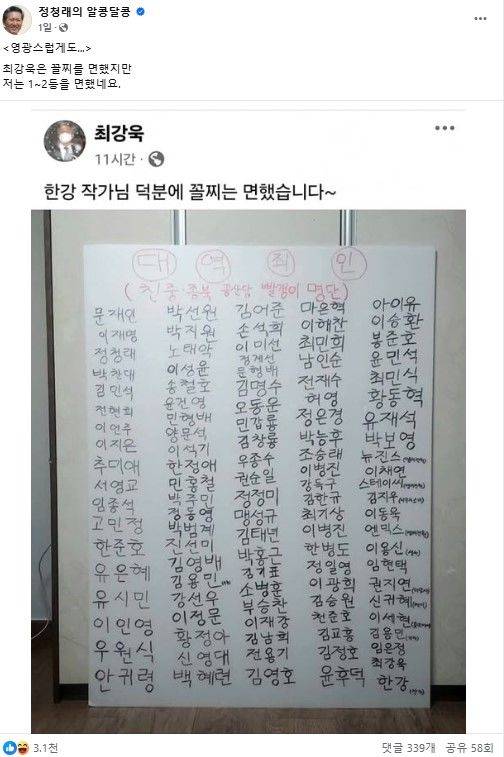 정청래의 알콩달콩
1일
<영광스럽게도...>
최강욱은 꼴찌를 면했지만
저는 1~2등을 면했네요.
최강욱
11시간
한강 작가님 덕분에 꼴찌는 면했습니다~
대 역 죄 인
(친중·종북 공산당 빨갱이 명단)
문재인 박선원 김어준 마은혁 아이유
이재명 박지원 손석희 이해찬 이승환
정청래 노태악 이미선 최민희 봉준호
박찬대 이성윤 정계선 남인순 윤민석
김민석 송철호 문형배 전재수 최민식
전현희 윤건영 김명수 허영 황동혁
이언주 민형배 오동운 정은경 유재석
이지은 양문석 민갑룡 박능후 박보영
추미애 이석기 김창룡 조승래 뉴진스
서영교 한정애 우종수 이병진 이채연
임종석 민홍철 권순일 강득구 스테이씨
고민정 박주민 정정미 김한규 김지우
한준호 정동영 맹성규 최기상 이동욱
유은혜 박범계 김태년 이병진 엔믹스
유시민 진선미 박홍근 한병도 이용신
이인영 김영배 김기표 정일영 임현택
우원식 김용민 소병훈 이광희 권지연
안귀령 강선우 부승찬 김승원 신귀혜
이정문 이재강 천준호 이세현
황정아 김남희 김교흥 김용민
신영대 전용기 김정호 임은정
백혜련 김영호 윤후덕 최강욱
한강
3.1천
댓글 339개 공유 58회